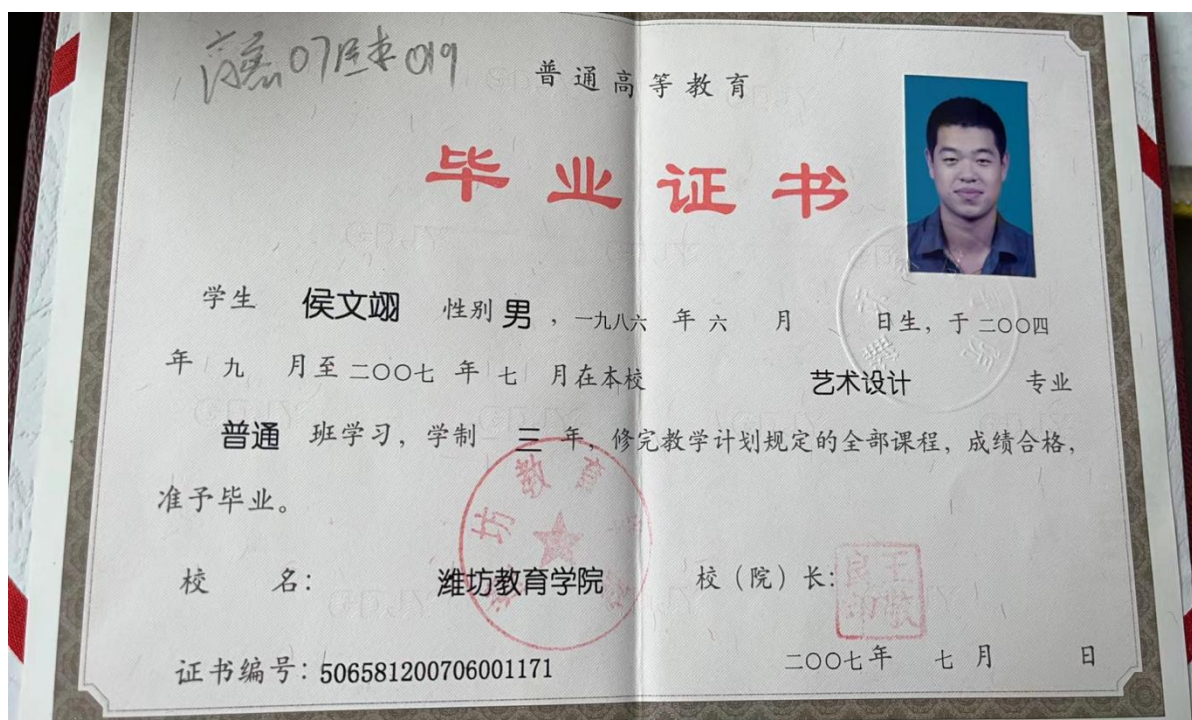 07 019
普通高等教育
毕业证书
学生 侯文翊 性别 男，一九八六 年 六 月 日生，于 二〇〇四
年 九 月至 二〇〇七 年 七 月在本校 艺术设计 专业
普通 班学习，学制 三 年，修完教学计划规定的全部课程，成绩合格，
准予毕业。
潍坊教育学院
校 名： 潍坊教育学院 校（院）长：
王敬良印
证书编号：506581200706001171 二〇〇七年 七 月 日